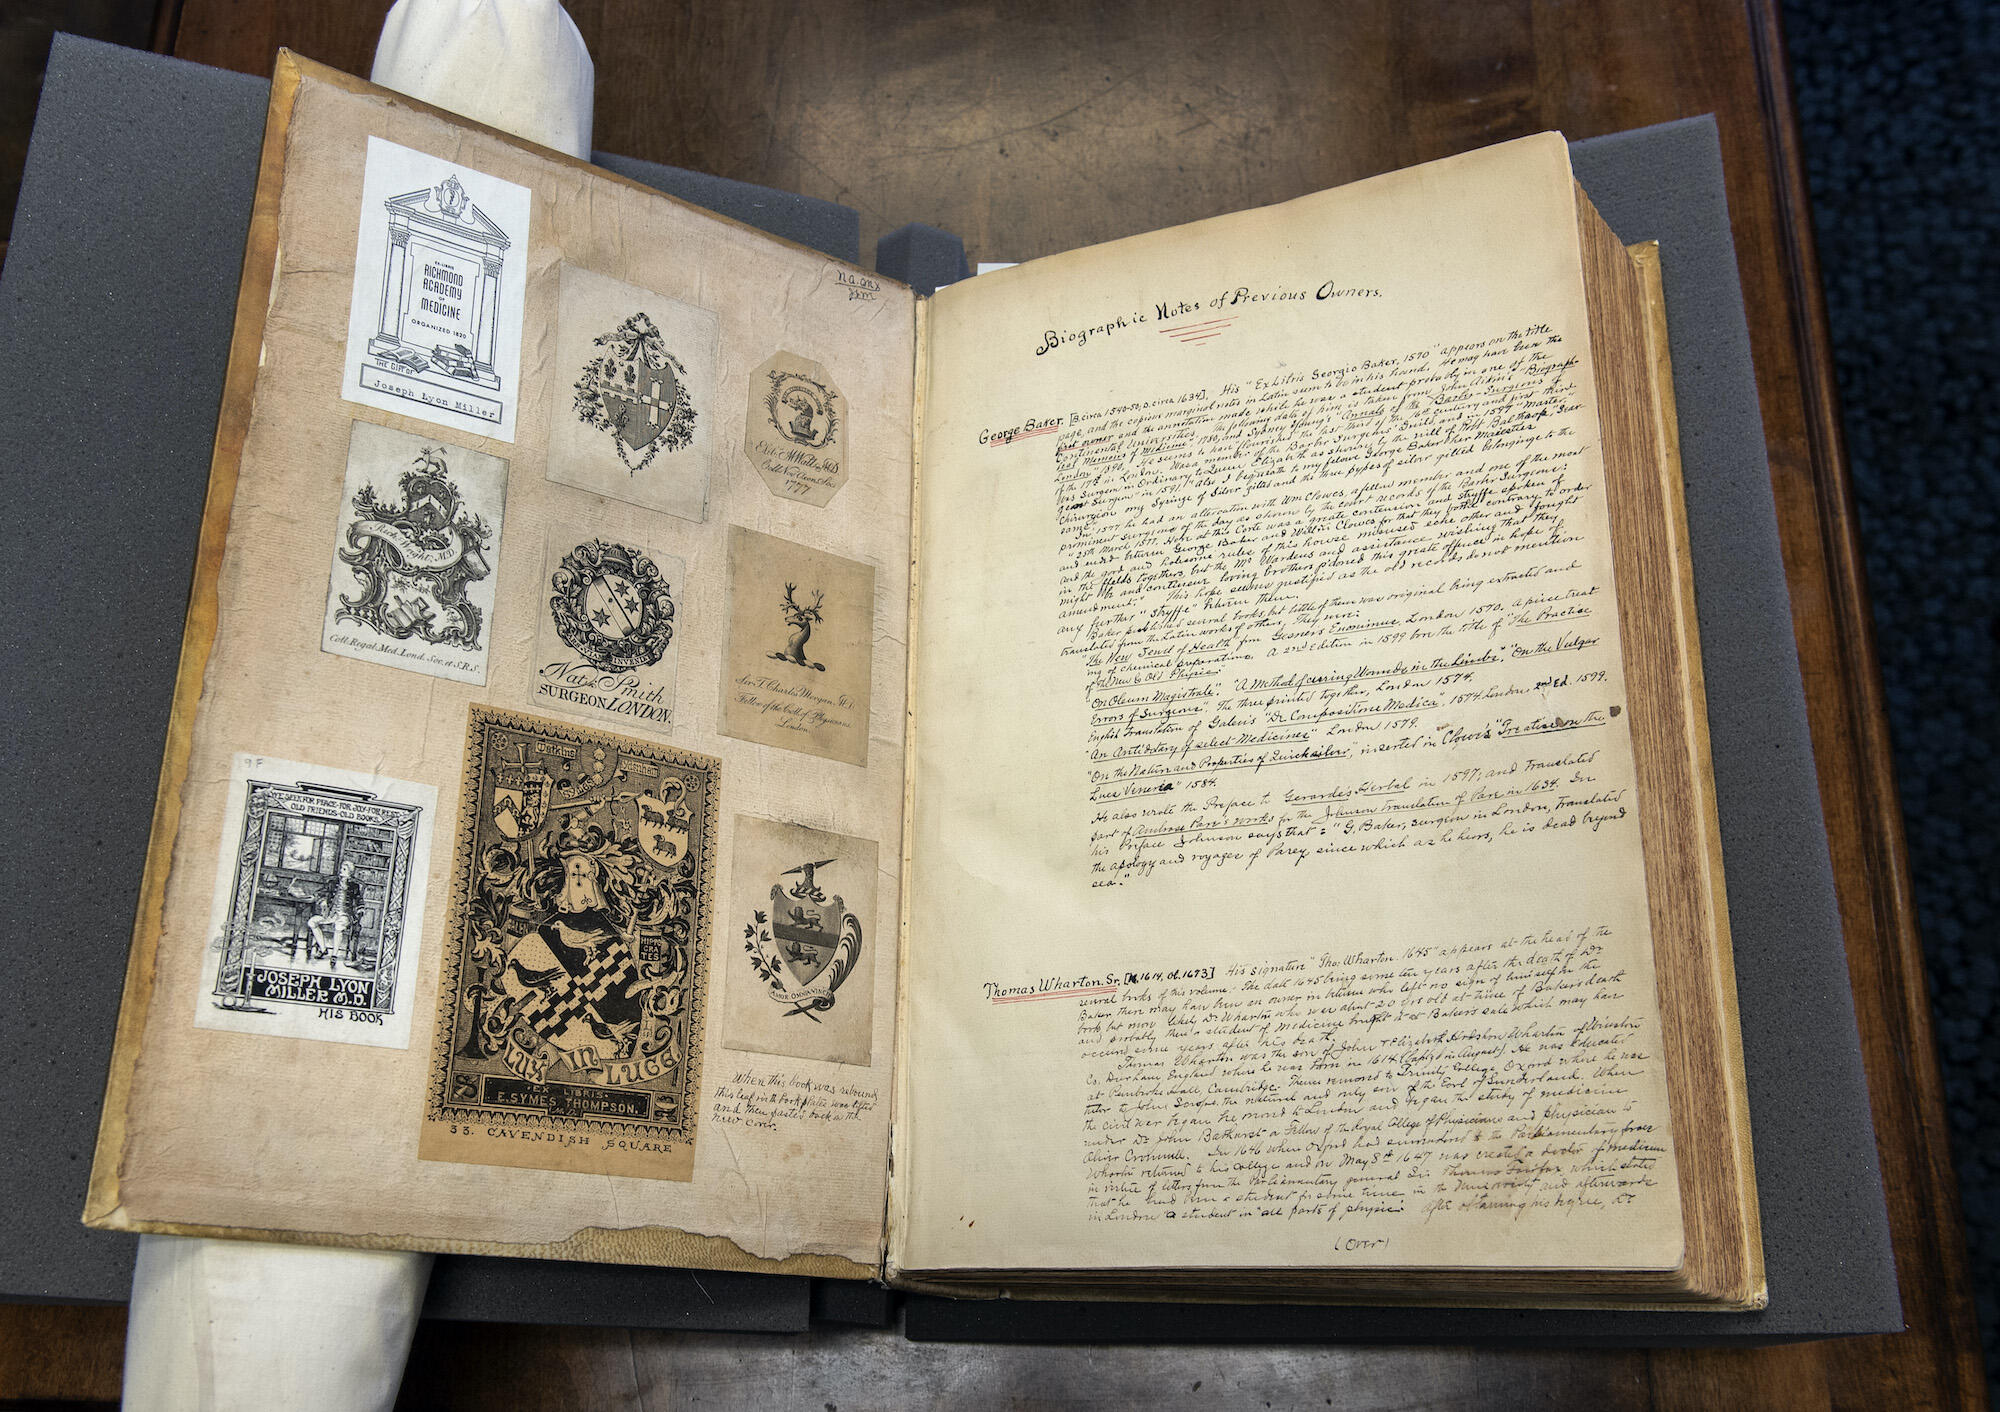 EX·LIBRIS
RICHMOND
ACADEMY
OF
MEDICINE
ORGANIZED 1820
THE GIFT OF
Joseph Lyon Miller
Coll. Regal. Med. Lond. Soc. et S.R.S.
1777
Nat. Smith
SURGEON LONDON.
Sir T. Charles Morgan, M.D.
Fellow of the Coll. of Physicians
London.
9F
WE SEEK FOR PEACE·FOR JOY·FOR REST
OLD FRIENDS·OLD BOOKS
JOSEPH LYON
MILLER M.D.
HIS BOOK
Watkins
GALEN
HIPPO
CRA
TES
LUX IN LUCE
EX LIBRIS
E. SYMES THOMPSON.
33. CAVENDISH SQUARE
When this book was rebound
this leaf with bookplates was lifted
and then pasted back on the
new cover.
Biographic Notes of Previous Owners.
George Baker. [B. circa 1540-50, D. circa 1634]. His "Ex Libris Georgio Baker, 1570" appears on the title
page, and the copious marginal notes in Latin seem to be in his hand. He may have been the
first owner and the annotation made while he was a student probably in one of the
Continental Universities. The following data of him is taken from John Aikin's "Biograph-
ical Memoirs of Medicine" 1780, and Sydney Young's "Annals of the Barber-Surgeons of
London" 1890. He seems to have flourished the last third of the 16th century and first third
of the 17th in London. Was a member of the Barber Surgeons' Guild and in 1597 "Master."
Was Surgeon in Ordinary to Queen Elizabeth as shown by the will of Robt Balthrop "Sear-
geant Surgeon" in 1591, "also I bequeath to my fellowe George Baker one of her Majesties
Chirurgion my Syringe of Silver gilte and the three pypes of silver gilted belonginge to the
same."
In 1577 he had an altercation with Wm Clowes, a fellow member and one of the most
prominent surgeons of the day as shown by the court records of the Barber Surgeons:
"25th March 1577. Here at this Corte was a greate contension and stryffe spoken of
and ended between George Baker and Willm Clowes for that they bothe contrary to order
and the good and holesome rules of this house misused eche other and fought
in the ffelds togethers, but the Mr Wardens and assistance wishing that they
might be and contenew loving brothers p'doned this greate offence in hope of
amendment." This hope seems justified as the old records do not mention
any further "stryffe" between them.
Baker published several books, but little of them was original being extracted and
translated from the Latin works of others. They were:
"The New Jewel of Health from Gesners Euonimus, London 1570. A piece treat
ing of chemical preparations. A 2nd Edition in 1599 bore the title of "The Practice
of the New & Old Phisic."
"On Oleum Magistrale." "A Method of curing Wounds in the Limbs", "On the Vulgar
Errors of Surgeons". The three printed together, London 1574.
English Translation of Galen's "De Compositione Medica", 1574. London 2nd Ed. 1599.
"An Antidotary of select Medicines" London 1579.
"On the Nature and Properties of Quicksilver", inserted in Clowe's "Treatise on the
Lues Veneria" 1584.
He also wrote the Preface to Gerarde's Herbal in 1597; and translated
part of Ambrose Pare's works for the Johnson translation of Pare in 1634. In
his Preface Johnson says that: "G. Baker, surgeon in London, translated
the apology and voyages of Parey, since which as he hears, he is dead beyond
sea."
Thomas Wharton. Sr. [b. 1614, d. 1673] His signature "Tho: Wharton. 1645" appears at the head of the
several books of this volume. The date 1645 being some ten years after the death of Dr
Baker there may have been an owner in between who left no sign of himself in the
book, but more likely Dr Wharton who was about 20 yrs old at time of Baker's death
and probably then a student of medicine bought it at Baker's sale which may have
occured some years after his death.
Thomas Wharton was the son of John & Elizabeth Hodshon Wharton of Winston
Co. Durham, England where he was born in 1614 (baptized in August). He was educated
at Pembroke Hall, Cambridge. Thence removed to Trinity College, Oxford where he was
tutor to John Scrope, the natural and only son of the Earl of Sunderland. When
the civil war began he moved to London and began the study of medicine
under Dr John Bathurst a Fellow of the Royal College of Physicians and physician to
Oliver Cromwell. In 1646 when Oxford had surrendered to the Parliamentary forces
Wharton returned to his college and on May 8th 1647 was created a doctor of medicine
in virtue of letters from the Parliamentary general Sir Thomas Fairfax which stated
that he had been a student for some time in the University and afterwards
in London a student in "all parts of physic". After obtaining his degree, Dr
(over)